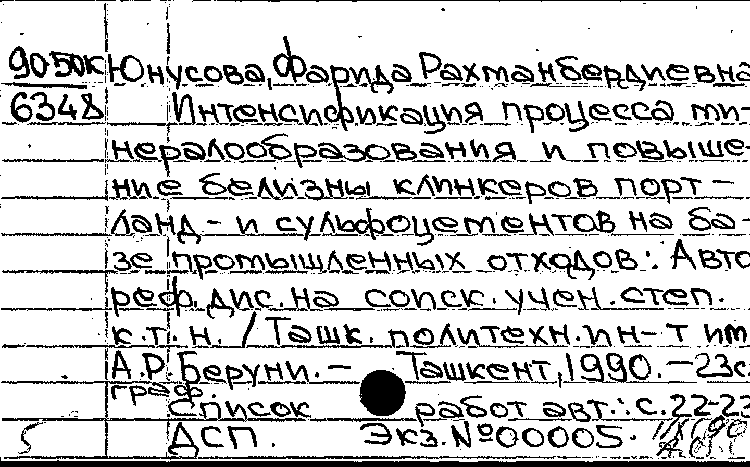 90-50К Юнусова, Фарида Рахманбердиевна
6348 Интенсификация процесса ми-
нералообразования и повыше-
ние белизны клинкеров порт-
ланд- и сульфоцементов на ба-
зе промышленных отходов: Авто
реф. дис. на соиск. учен. степ.
к.т.н. / Ташк. политехн. ин-т им
А.Р. Беруни. - Ташкент, 1990. - 23с.
граф.
Список работ авт.: с.22-23
5 ДСП. Экз. №00005.